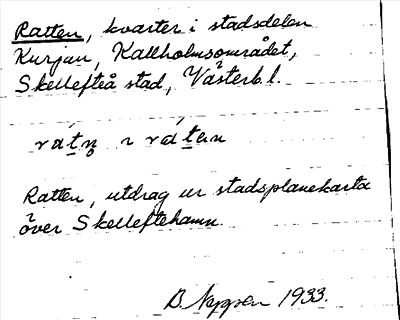 Ratten, kvarter i stadsdelen
Kurjan, Kallholmsområdet,
Skellefteå stad, Västerb. l.
Ratten, utdrag ur stadsplanekarta
över Skelleftehamn.
1933.